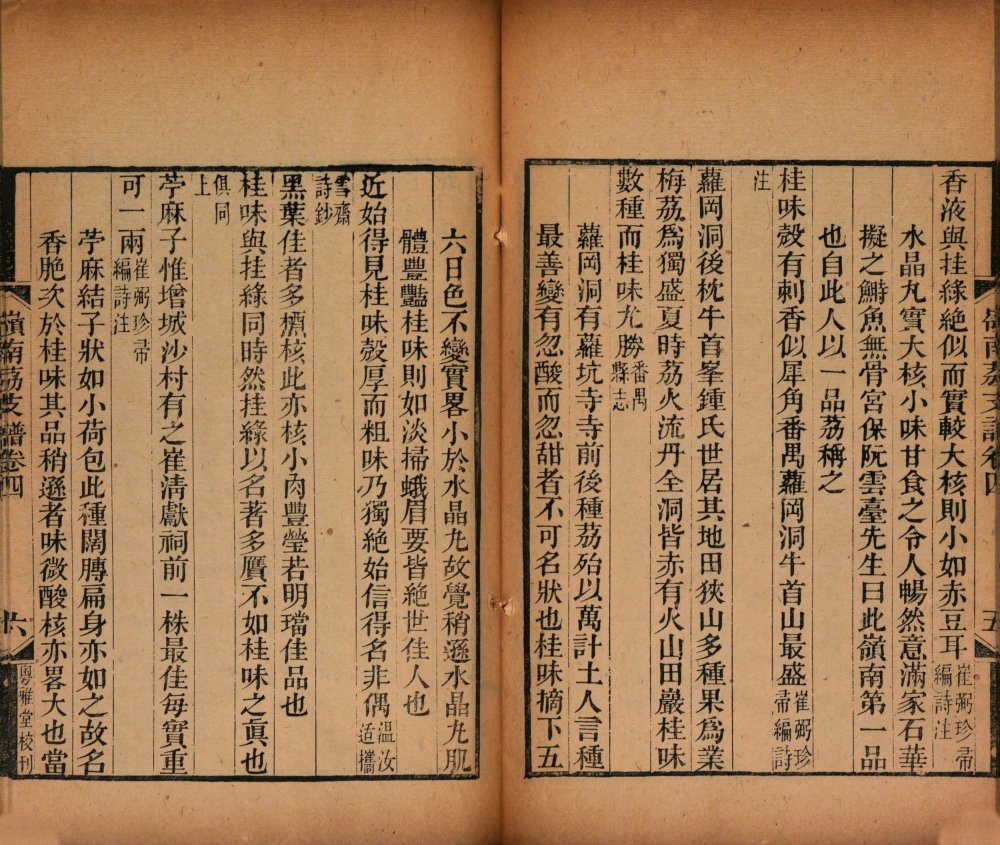 香液與挂綠絕似而實較大核則小如赤豆耳崔弼珍帚編詩注
水晶丸實大核小味甘食之令人暢然意滿家石華
擬之鰣魚無骨宮保阮雲臺先生曰此嶺南第一品
也自此人以一品荔稱之
桂味殼有刺香似犀角番禺蘿岡洞牛首山最盛崔弼珍帚編詩
注
蘿岡洞後枕牛首峯鍾氏世居其地田狹山多種果爲業
梅荔爲獨盛夏時荔火流丹全洞皆赤有火山田巖桂味
數種而桂味尤勝番禺縣志
蘿岡洞有蘿坑寺寺前後種荔殆以萬計土人言種
最善變有忽酸而忽甜者不可名狀也桂味摘下五
嶺南荔支譜卷四
五
六日色不變實畧小於水晶丸故覺稍遜水晶丸肌
體豐豔桂味則如淡掃蛾眉要皆絕世佳人也
近始得見桂味殼厚而粗味乃獨絕始信得名非偶溫汝适攜
雪齋詩鈔
黑葉佳者多𤍜核此亦核小肉豐瑩若明璫佳品也
桂味與挂綠同時然挂綠以名著多贋不如桂味之眞也
俱同上
苧麻子惟增城沙村有之崔淸獻祠前一株最佳每實重
可一兩崔弼珍帚編詩注
苧麻結子狀如小荷包此種闊膊扁身亦如之故名
香脆次於桂味其品稍遜者味微酸核亦畧大也當
嶺南荔支譜卷四
六
粵雅堂校刊